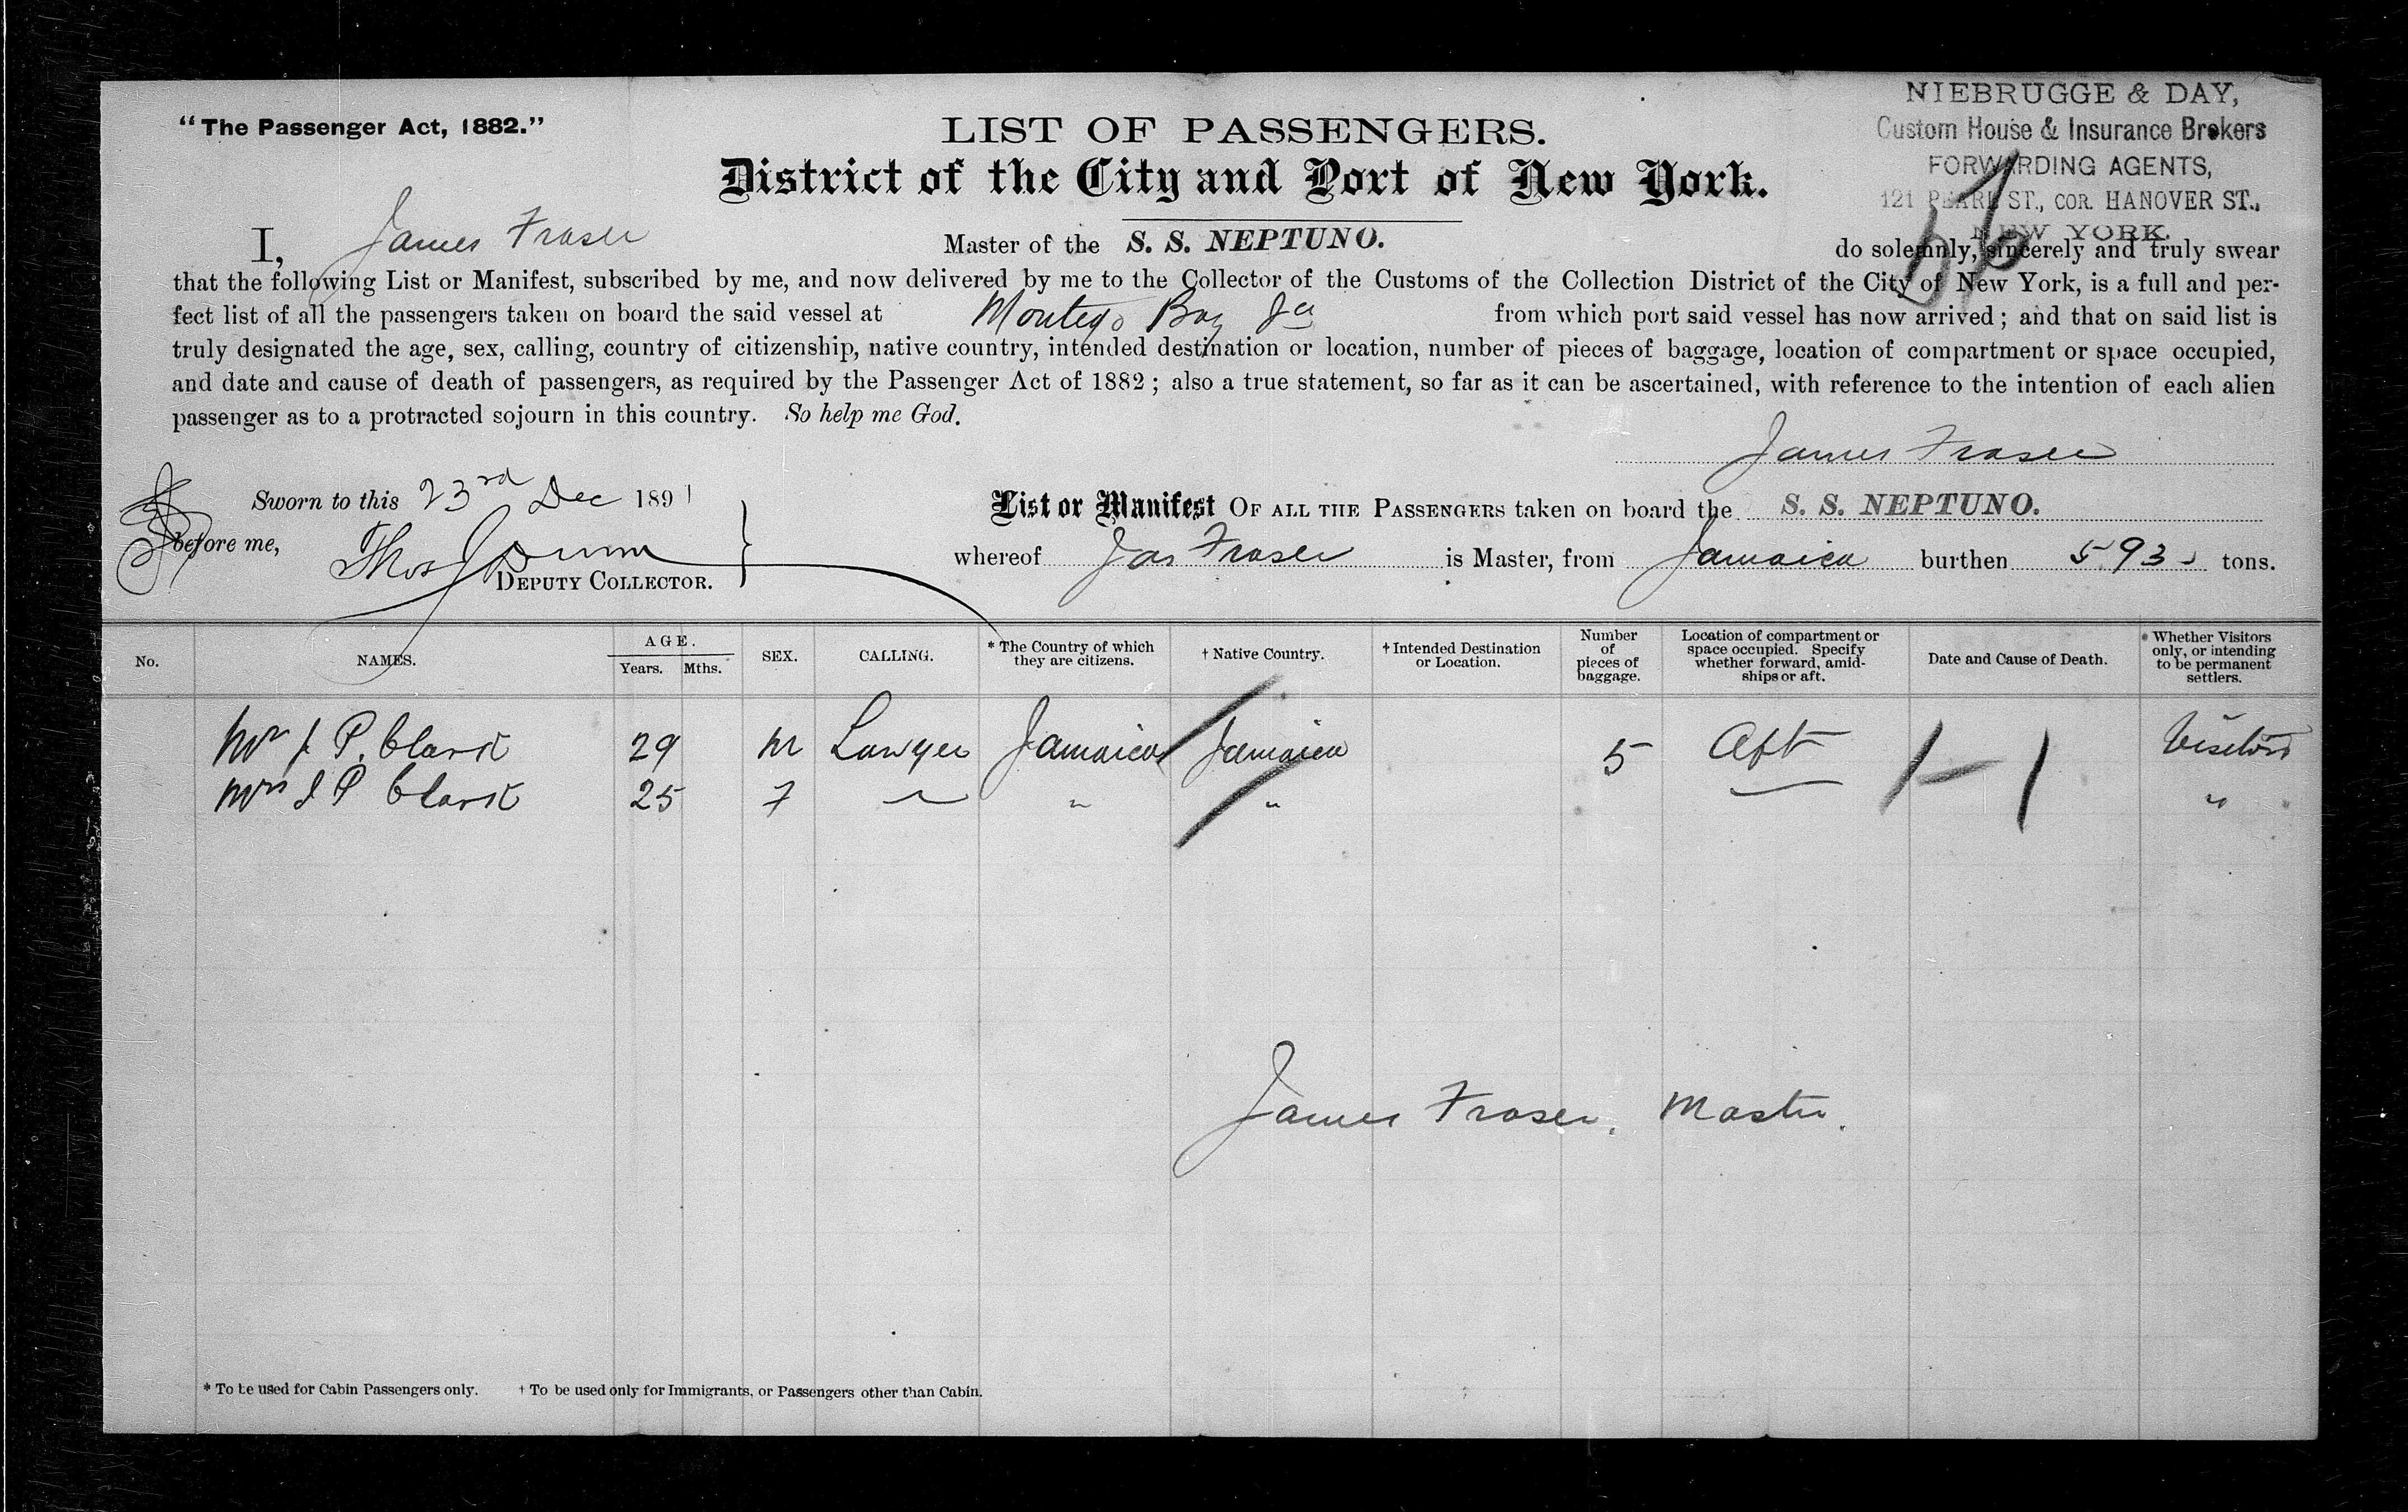 "The Passenger Act, 1882."
LIST OF PASSENGERS.
District of the City and Port of New York.
NIEBRUGGE & DAY,
Custom House & Insurance Brokers
FORWARDING AGENTS,
121 PEARL ST., COR. HANOVER ST.,
NEW YORK.
I, James Fraser Master of the S. S. NEPTUNO. do solemnly, sincerely and truly swear
that the following List or Manifest, subscribed by me, and now delivered by me to the Collector of the Customs of the Collection District of the City of New York, is a full and per-
fect list of all the passengers taken on board the said vessel at Montego Bay Ja from which port said vessel has now arrived; and that on said list is
truly designated the age, sex, calling, country of citizenship, native country, intended destination or location, number of pieces of baggage, location of compartment or space occupied,
and date and cause of death of passengers, as required by the Passenger Act of 1882; also a true statement, so far as it can be ascertained, with reference to the intention of each alien
passenger as to a protracted sojourn in this country. So help me God.
James Fraser
Sworn to this 23rd Dec 1891
before me, Thos J Dunn
DEPUTY COLLECTOR.
List or Manifest OF ALL THE PASSENGERS taken on board the S. S. NEPTUNO.
whereof Jas Fraser is Master, from Jamaica burthen 593 tons.
No. NAMES. AGE. Years. Mths. SEX. CALLING. * The Country of which they are citizens. † Native Country. † Intended Destination or Location. Number of pieces of baggage. Location of compartment or space occupied. Specify whether forward, amid-ships or aft. Date and Cause of Death. * Whether Visitors only, or intending to be permanent settlers.
Mr J. P. Clark 29 M Lawyer Jamaica Jamaica 5 Aft Visitors
Mrs J P Clark 25 F " " "
James Fraser. Master.
* To be used for Cabin Passengers only. † To be used only for Immigrants, or Passengers other than Cabin.